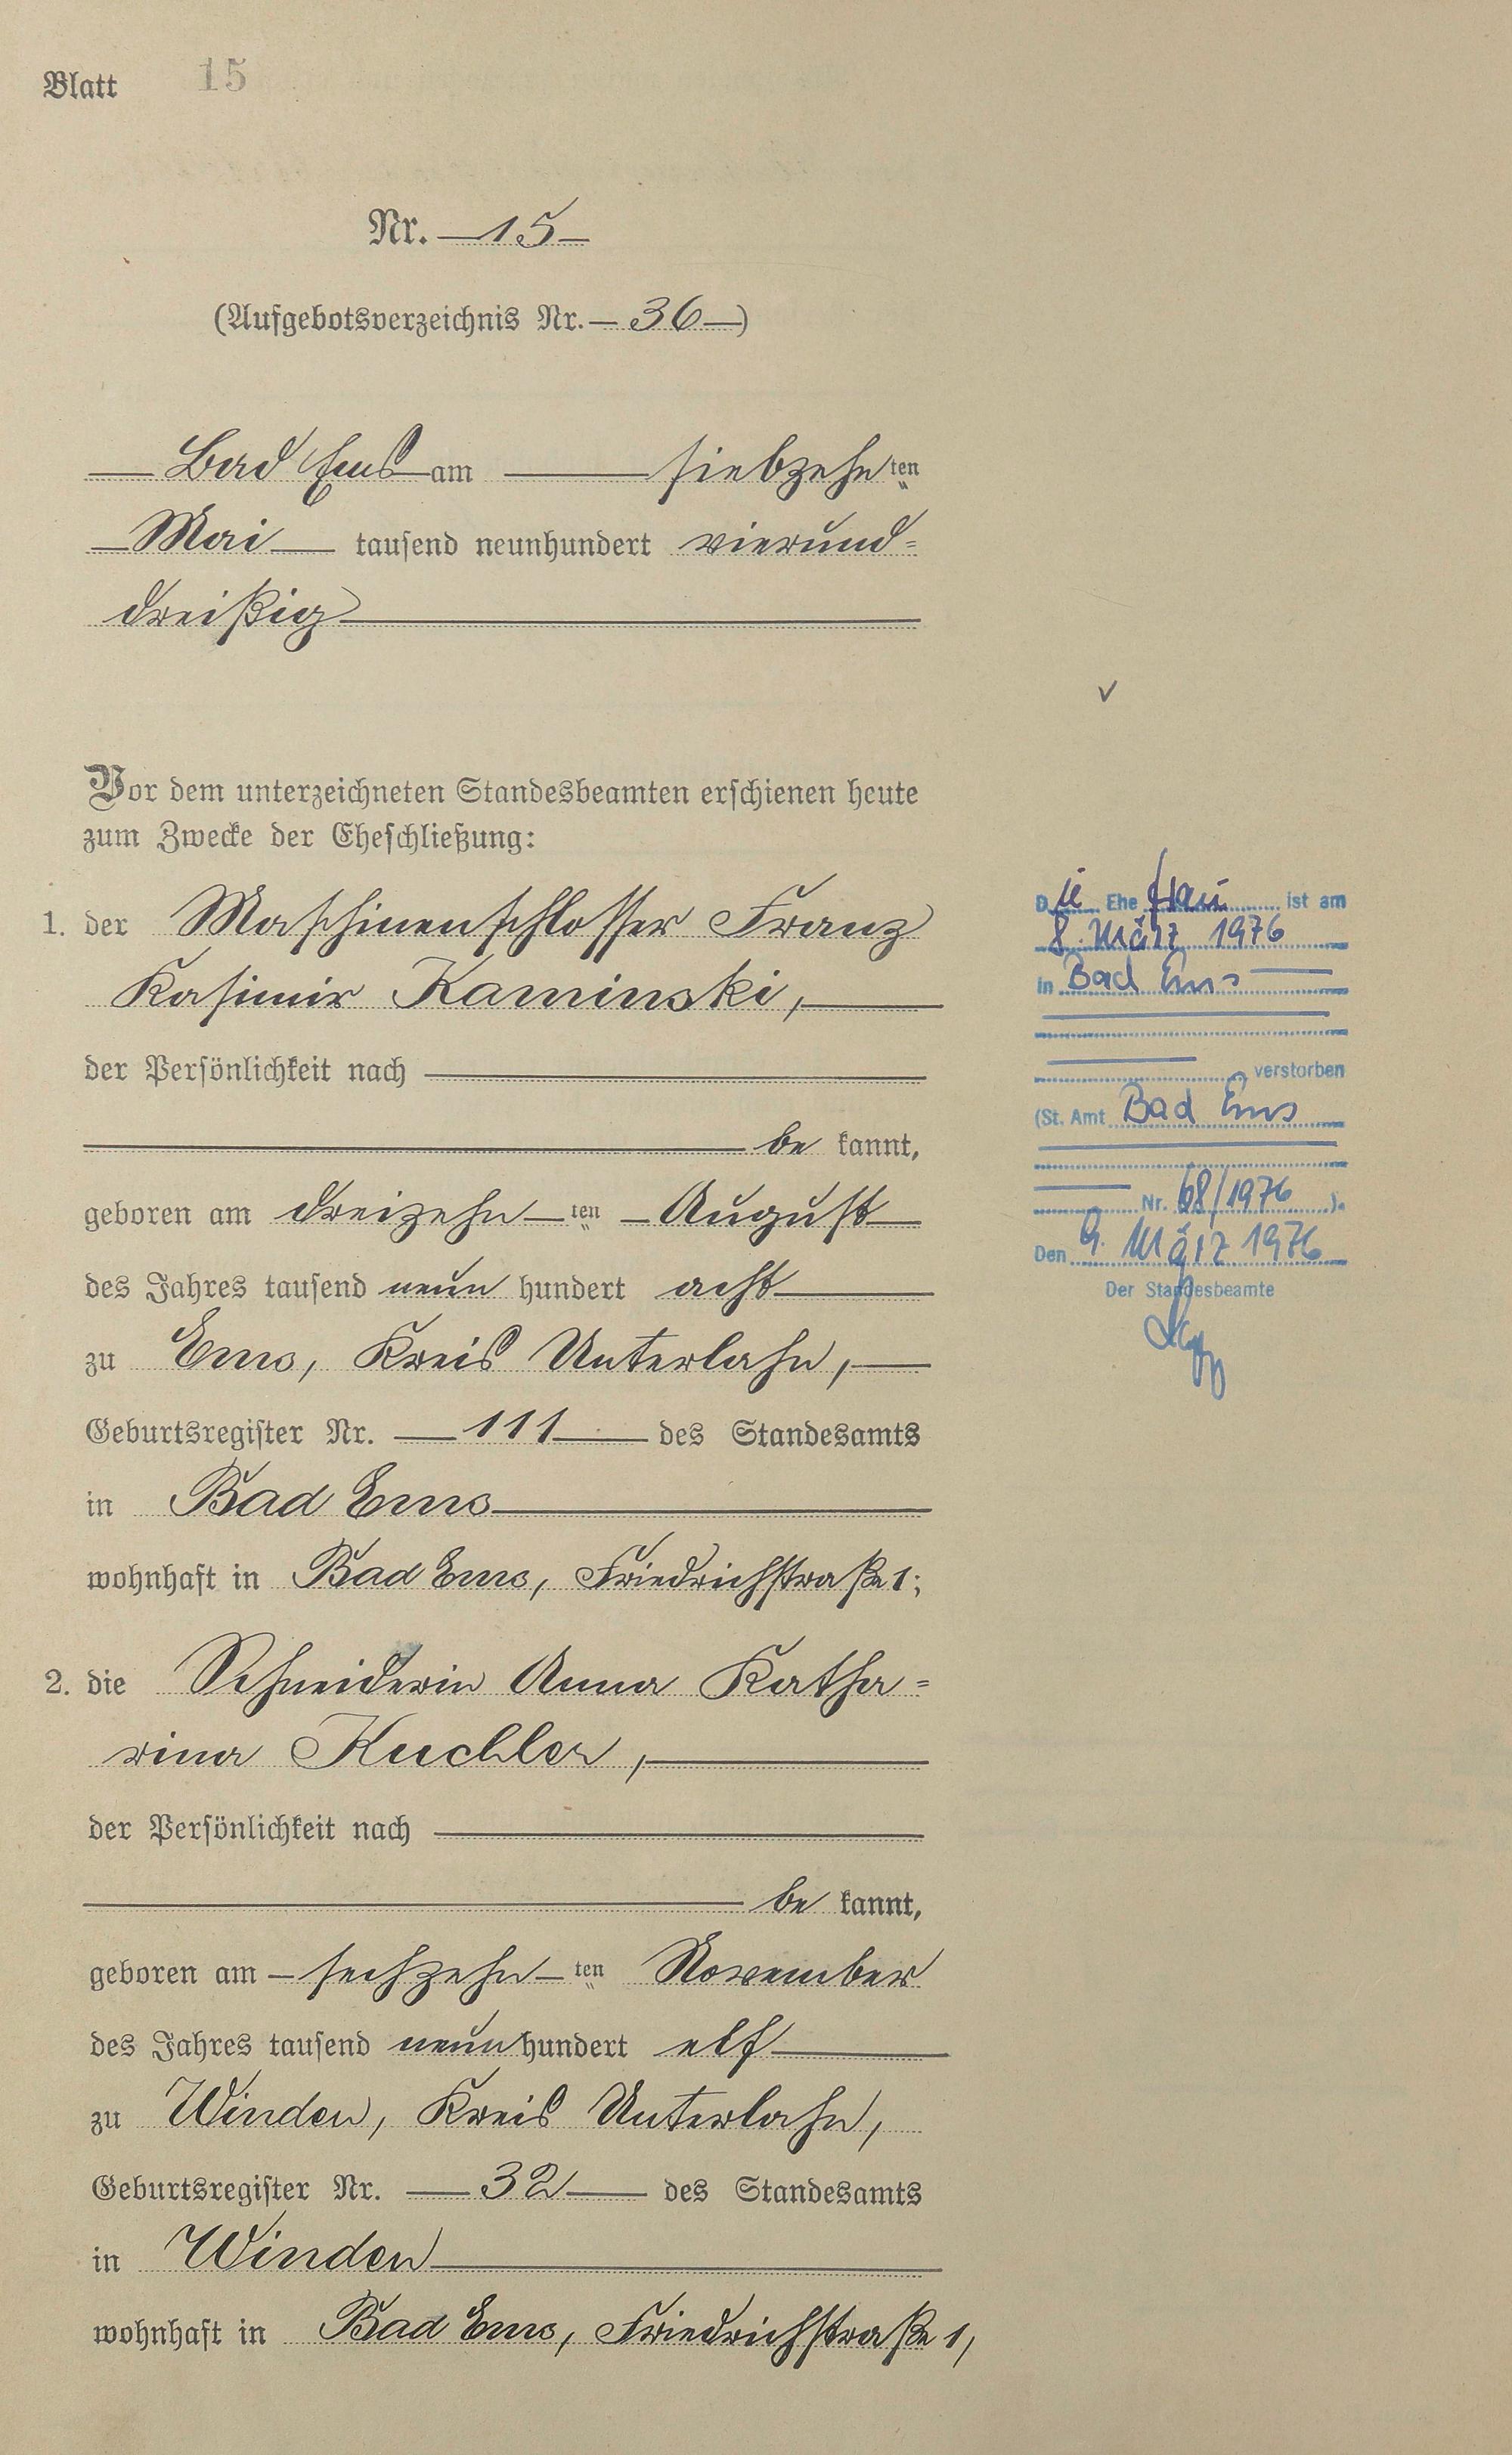 Blatt 15
Nr. 15
(Aufgebotsverzeichnis Nr. 36)
Bad Ems am siebzehnten
Mai tausend neunhundert vierund=
dreißig
Vor dem unterzeichneten Standesbeamten erschienen heute
zum Zwecke der Eheschließung:
1. der Maschinenschlosser Franz
Kasimir Kaminski,
der Persönlichkeit nach
be kannt,
geboren am dreizehnten August
des Jahres tausend neun hundert acht
zu Ems, Kreis Unterlahn,
Geburtsregister Nr. 111 des Standesamts
in Bad Ems
wohnhaft in Bad Ems, Friedrichstraße 1;
2. die Schneiderin Anna Katha=
rina Kuchler,
der Persönlichkeit nach
be kannt,
geboren am sechzehnten November
des Jahres tausend neun hundert elf
zu Winden, Kreis Unterlahn,
Geburtsregister Nr. 32 des Standesamts
in Winden
wohnhaft in Bad Ems, Friedrichstraße 1,
Die Ehefrau ist am
8. März 1976
in Bad Ems
verstorben
(St. Amt Bad Ems
Nr. 68/1976).
Den 9. März 1976
Der Standesbeamte